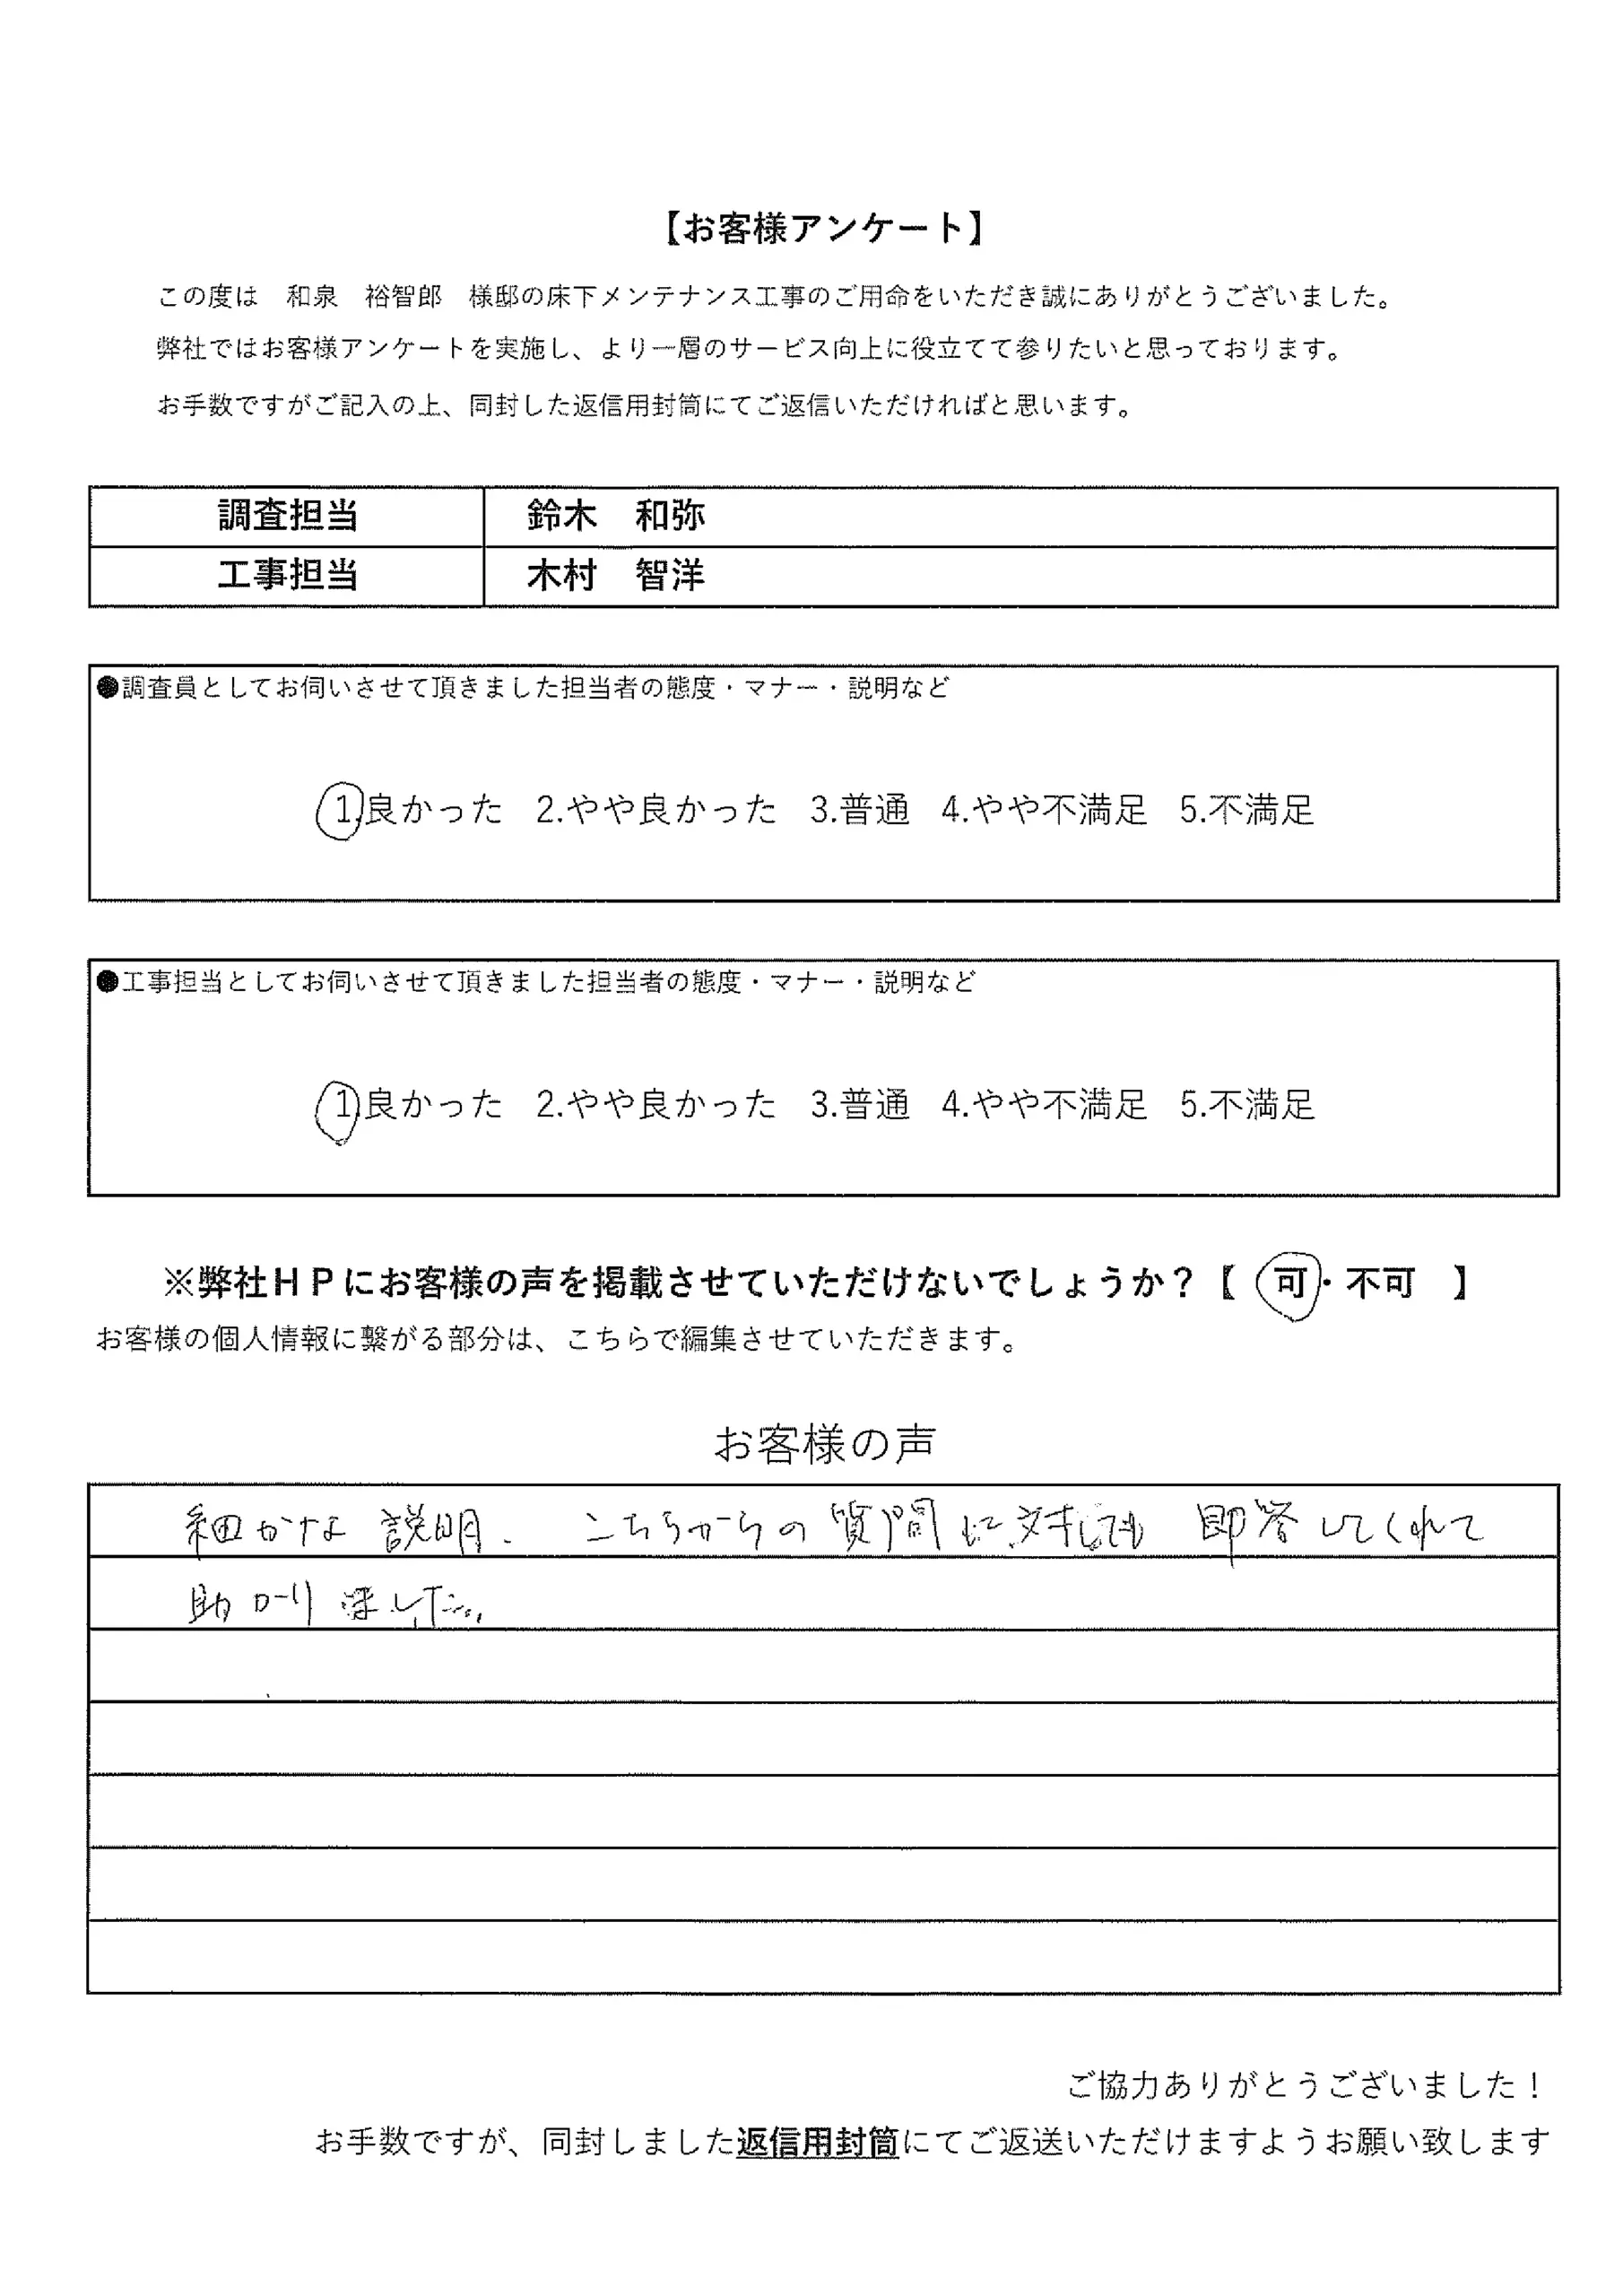 【お客様アンケート】
この度は　和泉　裕智郎　様邸の床下メンテナンス工事のご用命をいただき誠にありがとうございました。
弊社ではお客様アンケートを実施し、より一層のサービス向上に役立てて参りたいと思っております。
お手数ですがご記入の上、同封した返信用封筒にてご返信いただければと思います。
調査担当　鈴木　和弥
工事担当　木村　智洋
●調査員としてお伺いさせて頂きました担当者の態度・マナー・説明など
1.良かった 2.やや良かった 3.普通 4.やや不満足 5.不満足
●工事担当としてお伺いさせて頂きました担当者の態度・マナー・説明など
1.良かった 2.やや良かった 3.普通 4.やや不満足 5.不満足
※弊社ＨＰにお客様の声を掲載させていただけないでしょうか？【　可・不可　】
お客様の個人情報に繋がる部分は、こちらで編集させていただきます。
お客様の声
細かな説明、こちらからの質問に対しても即答してくれて
助かりました。
ご協力ありがとうございました！
お手数ですが、同封しました返信用封筒にてご返送いただけますようお願い致します